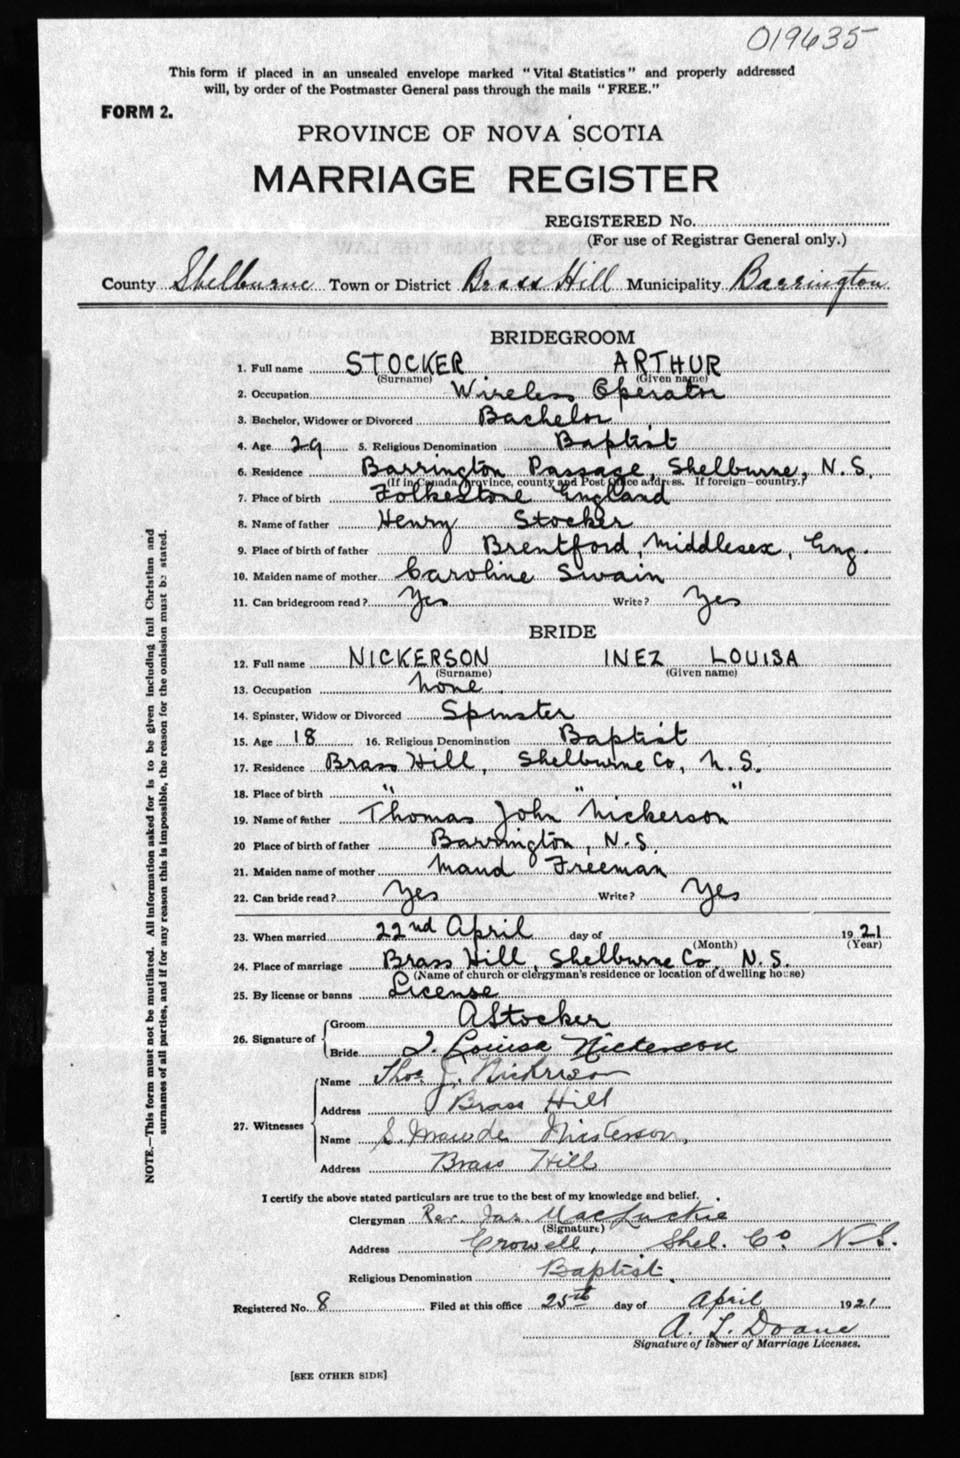 019635
This form if placed in an unsealed envelope marked "Vital Statistics" and properly addressed
will, by order of the Postmaster General pass through the mails "FREE."
FORM 2.
PROVINCE OF NOVA SCOTIA
MARRIAGE REGISTER
REGISTERED No.
(For use of Registrar General only.)
County Shelburne Town or District Brass Hill Municipality Barrington
BRIDEGROOM
1. Full name STOCKER ARTHUR
(Surname) (Given name)
2. Occupation Wireless Operator
3. Bachelor, Widower or Divorced Bachelor
4. Age 29 5. Religious Denomination Baptist
6. Residence Barrington Passage, Shelburne, N.S.
(If in Canada, province, county and Post Office address. If foreign—country.)
7. Place of birth Folkestone England
8. Name of father Henry Stocker
9. Place of birth of father Brentford, Middlesex, Eng.
10. Maiden name of mother Caroline Swain
11. Can bridegroom read? Yes Write? Yes
BRIDE
12. Full name NICKERSON INEZ LOUISA
(Surname) (Given name)
13. Occupation None
14. Spinster, Widow or Divorced Spinster
15. Age 18 16. Religious Denomination Baptist
17. Residence Brass Hill, Shelburne Co, N.S.
18. Place of birth " " "
19. Name of father Thomas John Nickerson
20 Place of birth of father Barrington, N.S.
21. Maiden name of mother Maud Freeman
22. Can bride read? Yes Write? Yes
23. When married 22nd April day of 1921
(Month) (Year)
24. Place of marriage Brass Hill, Shelburne Co, N.S.
(Name of church or clergyman's residence or location of dwelling house)
25. By license or banns License
26. Signature of
Groom A Stocker
Bride I. Louisa Nickerson
27. Witnesses
Name Thos J. Nickerson
Address Brass Hill
Name S. Maude Nickerson,
Address Brass Hill
I certify the above stated particulars are true to the best of my knowledge and belief.
Clergyman Rev. Jas. MacLuckie
(Signature)
Address Crowell, Shel. Co. N.S.
Religious Denomination Baptist.
Registered No. 8 Filed at this office 25th day of April 1921
A. L. Doane
Signature of Issuer of Marriage Licenses.
[SEE OTHER SIDE]
NOTE.—This form must not be mutilated. All information asked for is to be given including full Christian and
surnames of all parties, and if for any reason this is impossible, the reason for the omission must be stated.